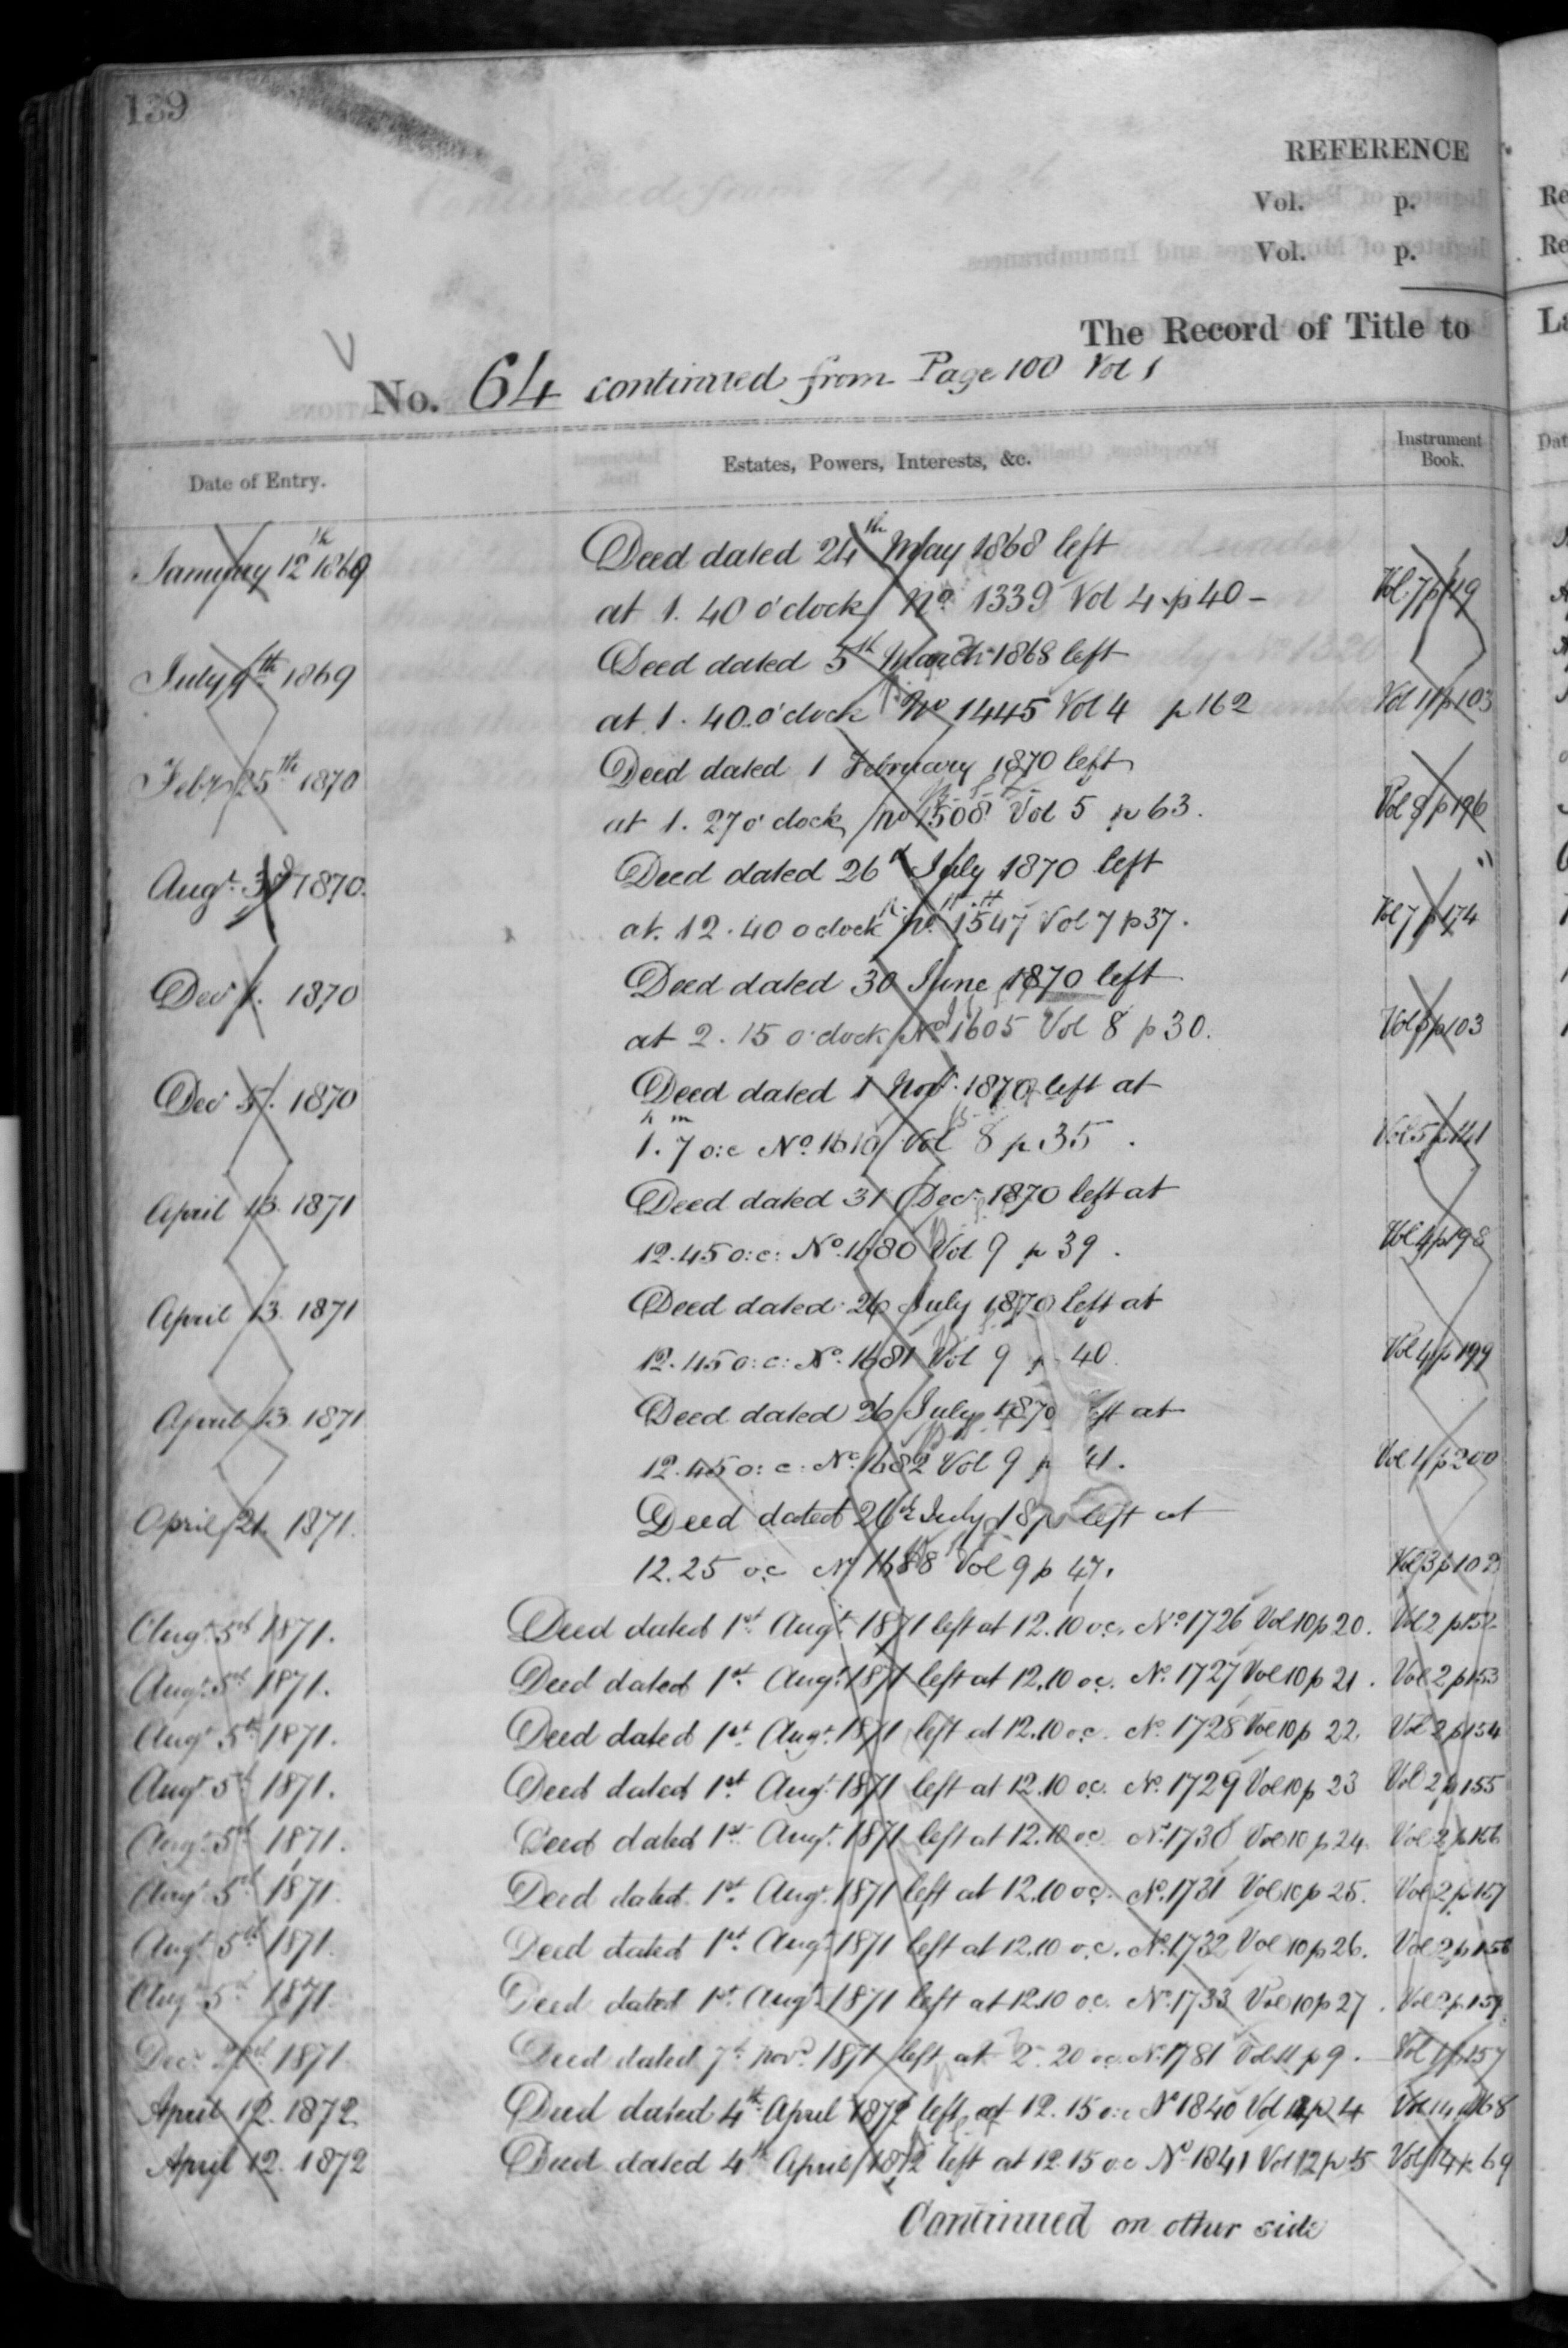 139
REFERENCE
Vol. p.
Vol. p.
The Record of Title to
No. 64 continued from Page 100 Vol 1
Date of Entry. Estates, Powers, Interests, &c. Instrument Book.
January 12th 1869 Deed dated 24th May 1868 left
at 1. 40 o'clock No 1339 Vol 4 p 40 - Vol 7 p
July th 1869 Deed dated 5th March 1868 left
at 1. 40 o'clock No 1445 Vol 4 p 162 Vol 11 p 103
Feby 25th 1870 Deed dated 1 February 1870 left
at 1. 27 o'clock No 1508 Vol 5 p 63. Vol 9 p 196
Augt. 1870. Deed dated 26 July 1870 left
at. 12. 40 oclock No. 1547 Vol 7 p 37. Vol 7 p 174
Decr 1. 1870 Deed dated 30 June 1870 left
at 2. 15 o'clock No 1605 Vol 8 p 30. Vol p 103
Decr 5. 1870 Deed dated 1 Novr. 1870 left at
h m
1. 7 o:c No. 1610 Vol 8 p 35. Vol 5 p 141
April 13. 1871 Deed dated 31 Decr. 1870 left at
12.45 o:c: No. 1680 Vol 9 p 39. Vol 4 p 198
April 13. 1871 Deed dated 26 July 1870 left at
12.45 o:c: No. 1681 Vol 9 p 40. Vol 4 p 199
April 13. 1871 Deed dated 26 July 1870 left at
12.45 o:c: No. 1682 Vol 9 p 41. Vol p 200
April 21. 1871. Deed dated 26th July 18 left at
12.25 o.c No 1688 Vol 9 p 47. Vol 3 p 102
Augt. 5th 1871. Deed dated 1st. Augt. 1871 left at 12.10 o.c. No 1726 Vol 10 p 20. Vol 2 p 152
Augt. 5th 1871. Deed dated 1st. Augt. 1871 left at 12.10 o.c. No. 1727 Vol 10 p 21. Vol 2 p 153
Augt. 5th 1871. Deed dated 1st. Augt. 1871 left at 12.10 o.c. No. 1728 Vol 10 p 22. Vol 2 p 154
Augt. 5th 1871. Deed dated 1st. Augt. 1871 left at 12.10 o.c. No. 1729 Vol 10 p 23 Vol 2 p 155
Augt. 5th 1871. Deed dated 1st. Augt. 1871 left at 12.10 o.c. No. 1730 Vol 10 p 24. Vol 2 p 156
Augt. 5th 1871. Deed dated 1st. Augt. 1871 left at 12.10 o.c. No. 1731 Vol 10 p 25. Vol 2 p 157
Augt. 5th 1871. Deed dated 1st. Augt. 1871 left at 12.10 o.c. No. 1732 Vol 10 p 26. Vol 2 p 158
Augt. 5th 1871. Deed dated 1st. Augt. 1871 left at 12.10 o.c. No. 1733 Vol 10 p 27. Vol 2 p 159
Decr. 1871. Deed dated 7th Novr. 1871 left at 2. 20 o.c. No. 1781 Vol 11 p 9. Vol p 157
April 12. 1872 Deed dated 4th April 1872 left at 12. 15 o:c No 1840 Vol 12 p 4 Vol 14 p 68
April 12. 1872 Deed dated 4th April 1872 left at 12. 15 o.c No 1841 Vol 12 p 5 Vol 14 p. 69
Continued on other side